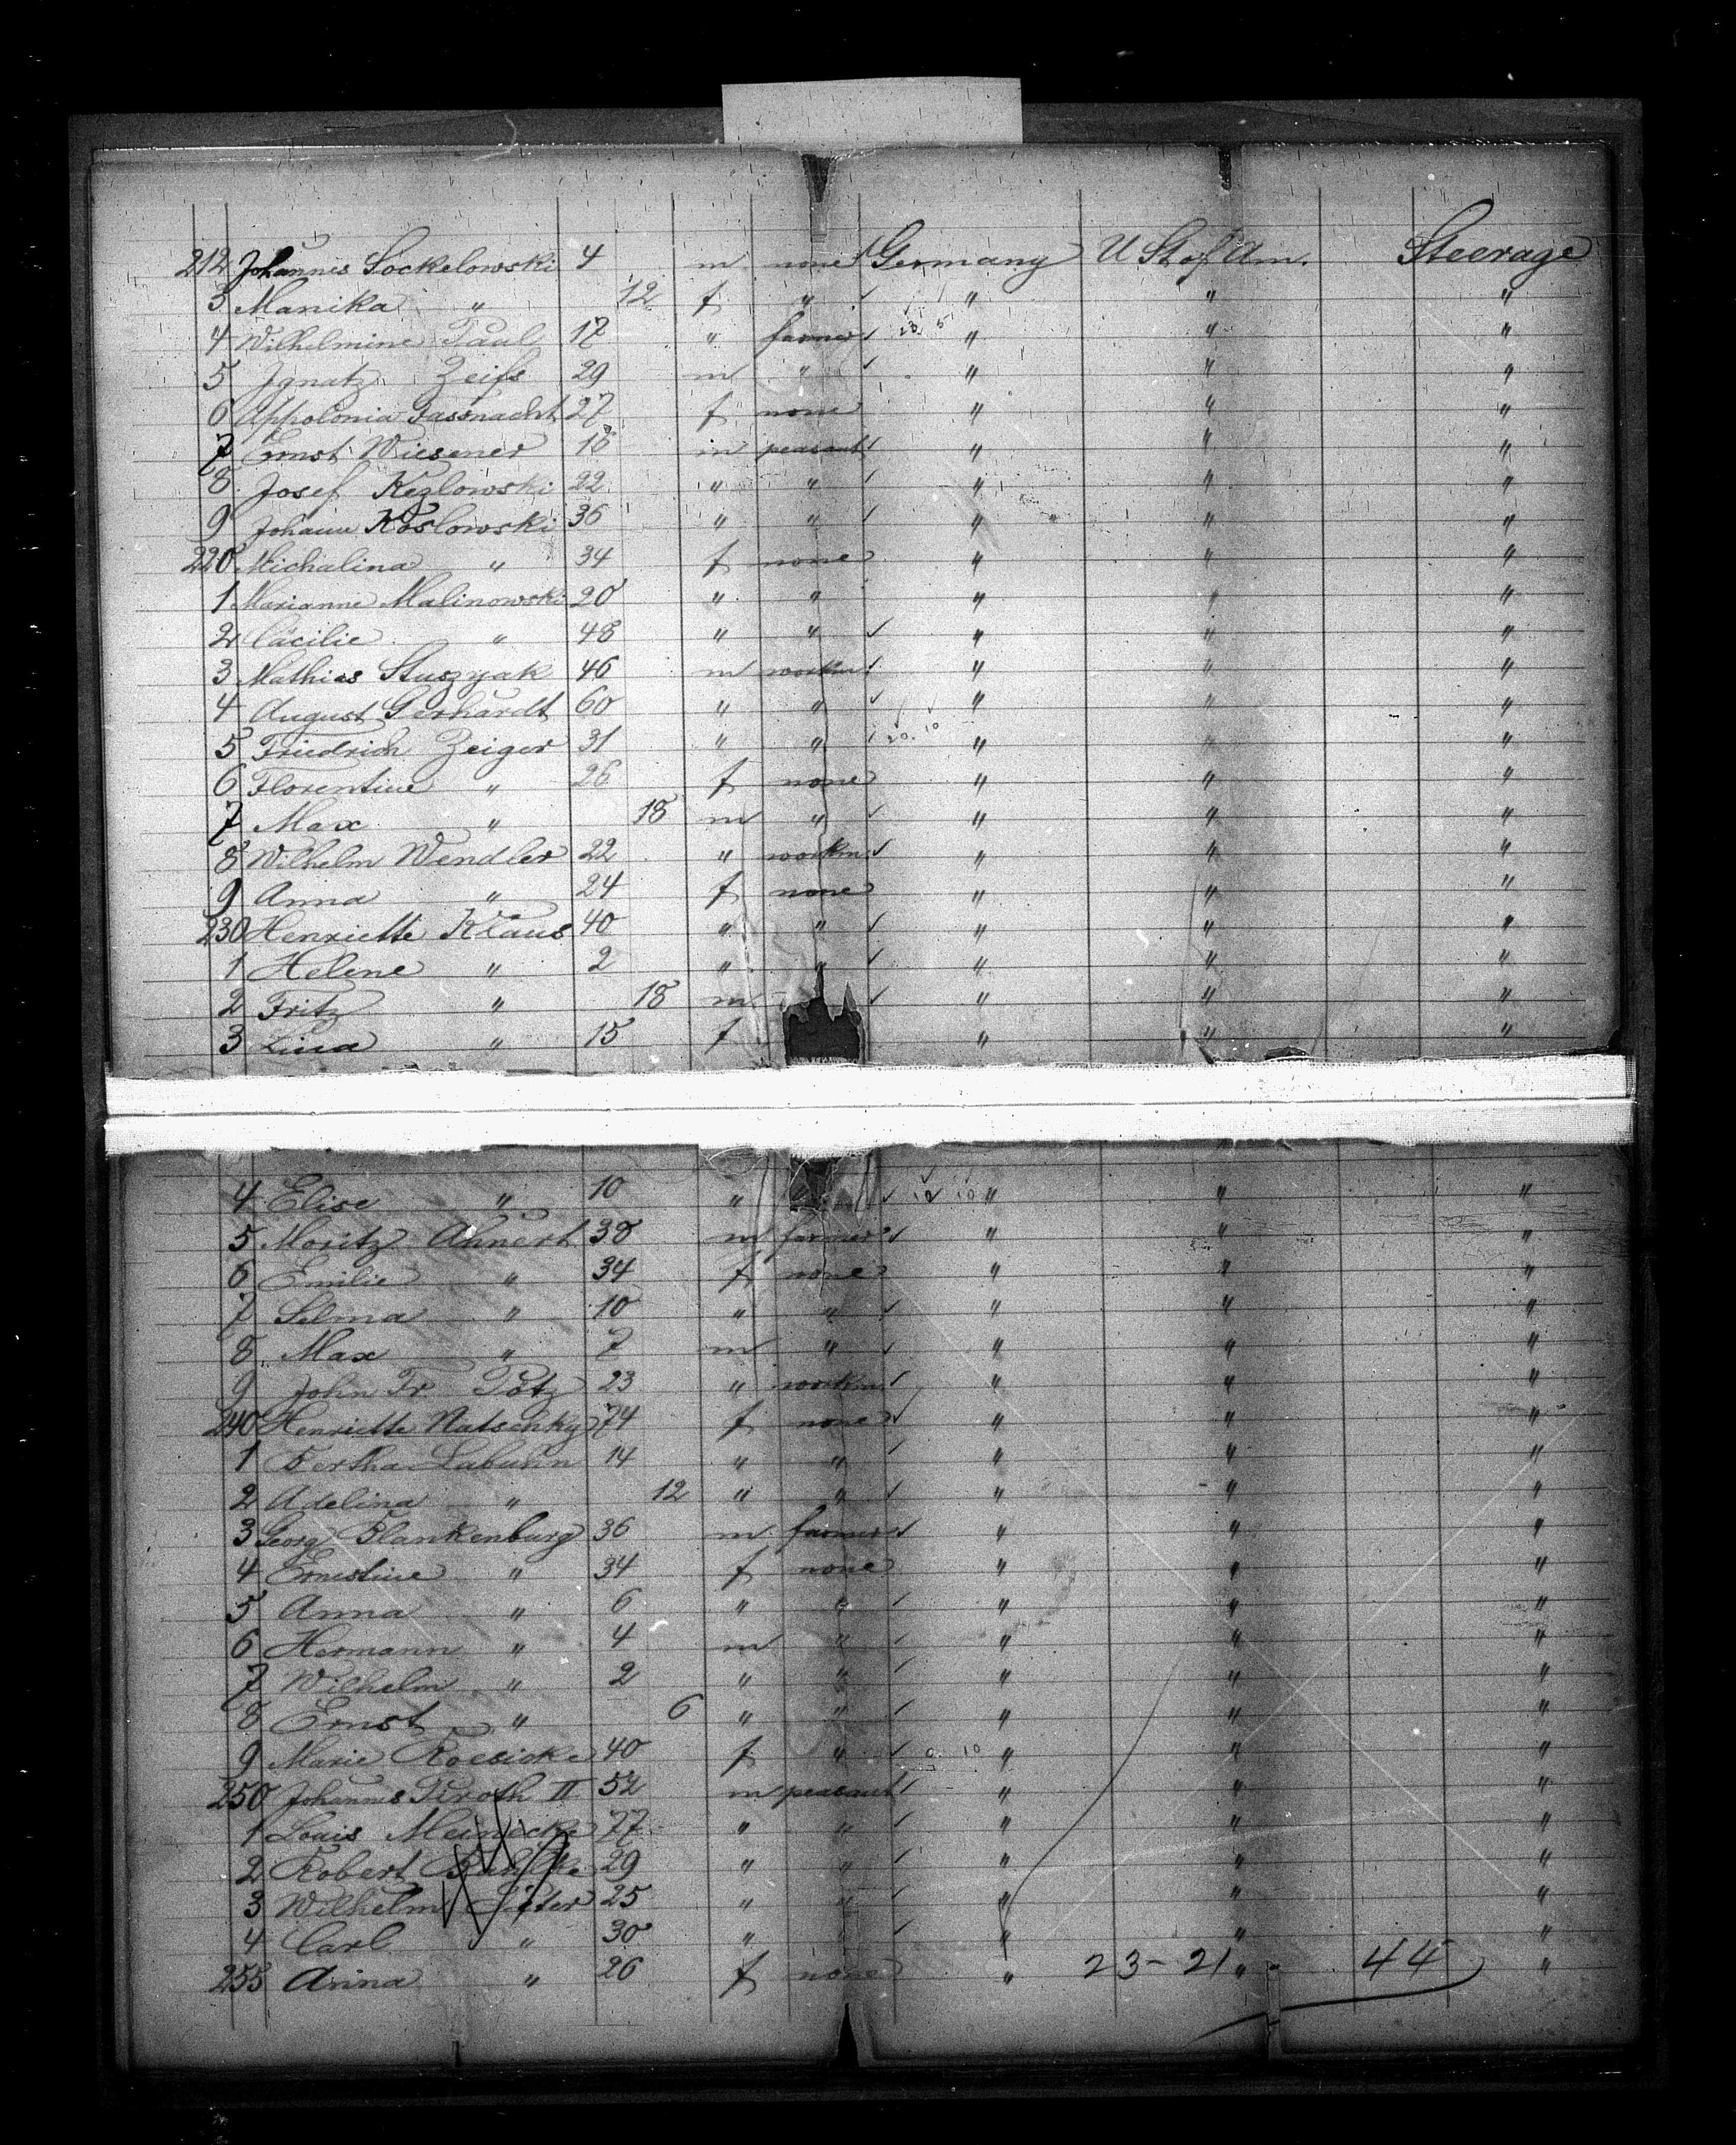 212 Johannes Sockelowski 4 m none Germany U St of Am. Steerage
3 Manika " 12 f " " " "
4 Wilhelmine Paul 17 " farmer " " "
5 Ignatz Zeifs 29 m " " " "
6 Appolonia Fassnacht 27 f none " " "
7 Ernst Wiesener 16 m peasant " " "
8 Josef Kezlowski 22 " " " " "
9 Johann Koslowski 36 " " " " "
220 Michalina " 34 f none " " "
1 Marianne Malinowski 20 " " " " "
2 Cäcilie " 48 " " " " "
3 Mathias Stuszyak 46 m workm " " "
4 August Gerhardt 60 " " " " "
5 Friedrich Zeiger 31 " " 20. 10 " " "
6 Florentine " 26 f none " " "
7 Max " 18 m " " " "
8 Wilhelm Wendler 22 " workm " " "
9 Anna " 24 f none " " "
230 Henriette Klaus 40 " " " " "
1 Helene " 2 " " " " "
2 Fritz " 18 m " " "
3 Lina " 15 f " " "
4 Elise " 10 " 12 10 " " "
5 Moritz Ahnert 38 m farmer " " "
6 Emilie " 34 f none " " "
7 Selma " 10 " " " " "
8 Max " 7 m " " " "
9 John Fr. Pötz 23 " workm " " "
240 Henriette Natschky 74 f none " " "
1 Bertha Labuhn 14 " " " " "
2 Adelina " 12 " " " " "
3 Georg Blankenburg 36 m farmer " " "
4 Ernestine " 34 f none " " "
5 Anna " 6 " " " " "
6 Hermann " 4 m " " " "
7 Wilhelm " 2 " " " " "
8 Ernst " 6 " " " " "
9 Marie Roesicke 40 f " 10 " " "
250 Johannes Piroth II 52 m peasant " " "
1 Louis Meinecke 77 " " " " "
2 Robert 29 " " " " "
3 Wilhelm 25 " " " " "
4 Carl " 30 " " " "
255 Anna " 26 f none " 23 - 21 " 44 "